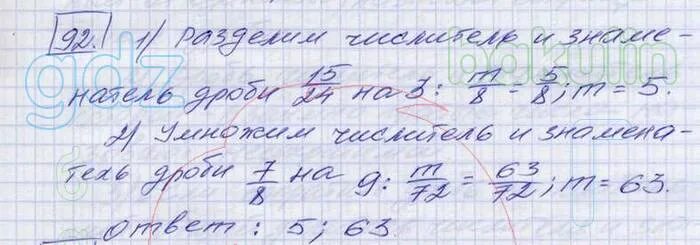 92. 1) Разделим числитель и знаме-
натель дроби 15/24 на 3: m/8 = 5/8; m = 5.
2) Умножим числитель и знамена-
тель дроби 7/8 на 9: m/72 = 63/72; m = 63.
Ответ: 5; 63.
gdz
bakulin